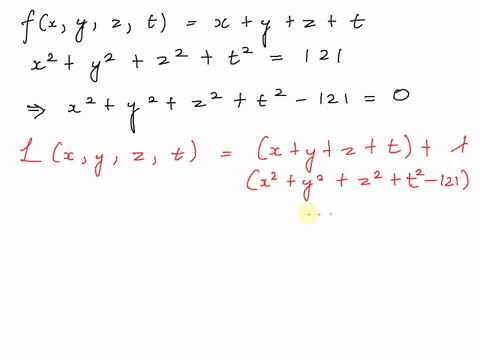 f(x, y, z, t) = x + y + z + t
x² + y² + z² + t² = 121
⇒ x² + y² + z² + t² - 121 = 0
L (x, y, z, t) = (x + y + z + t) + λ
(x² + y² + z² + t² - 121)
...